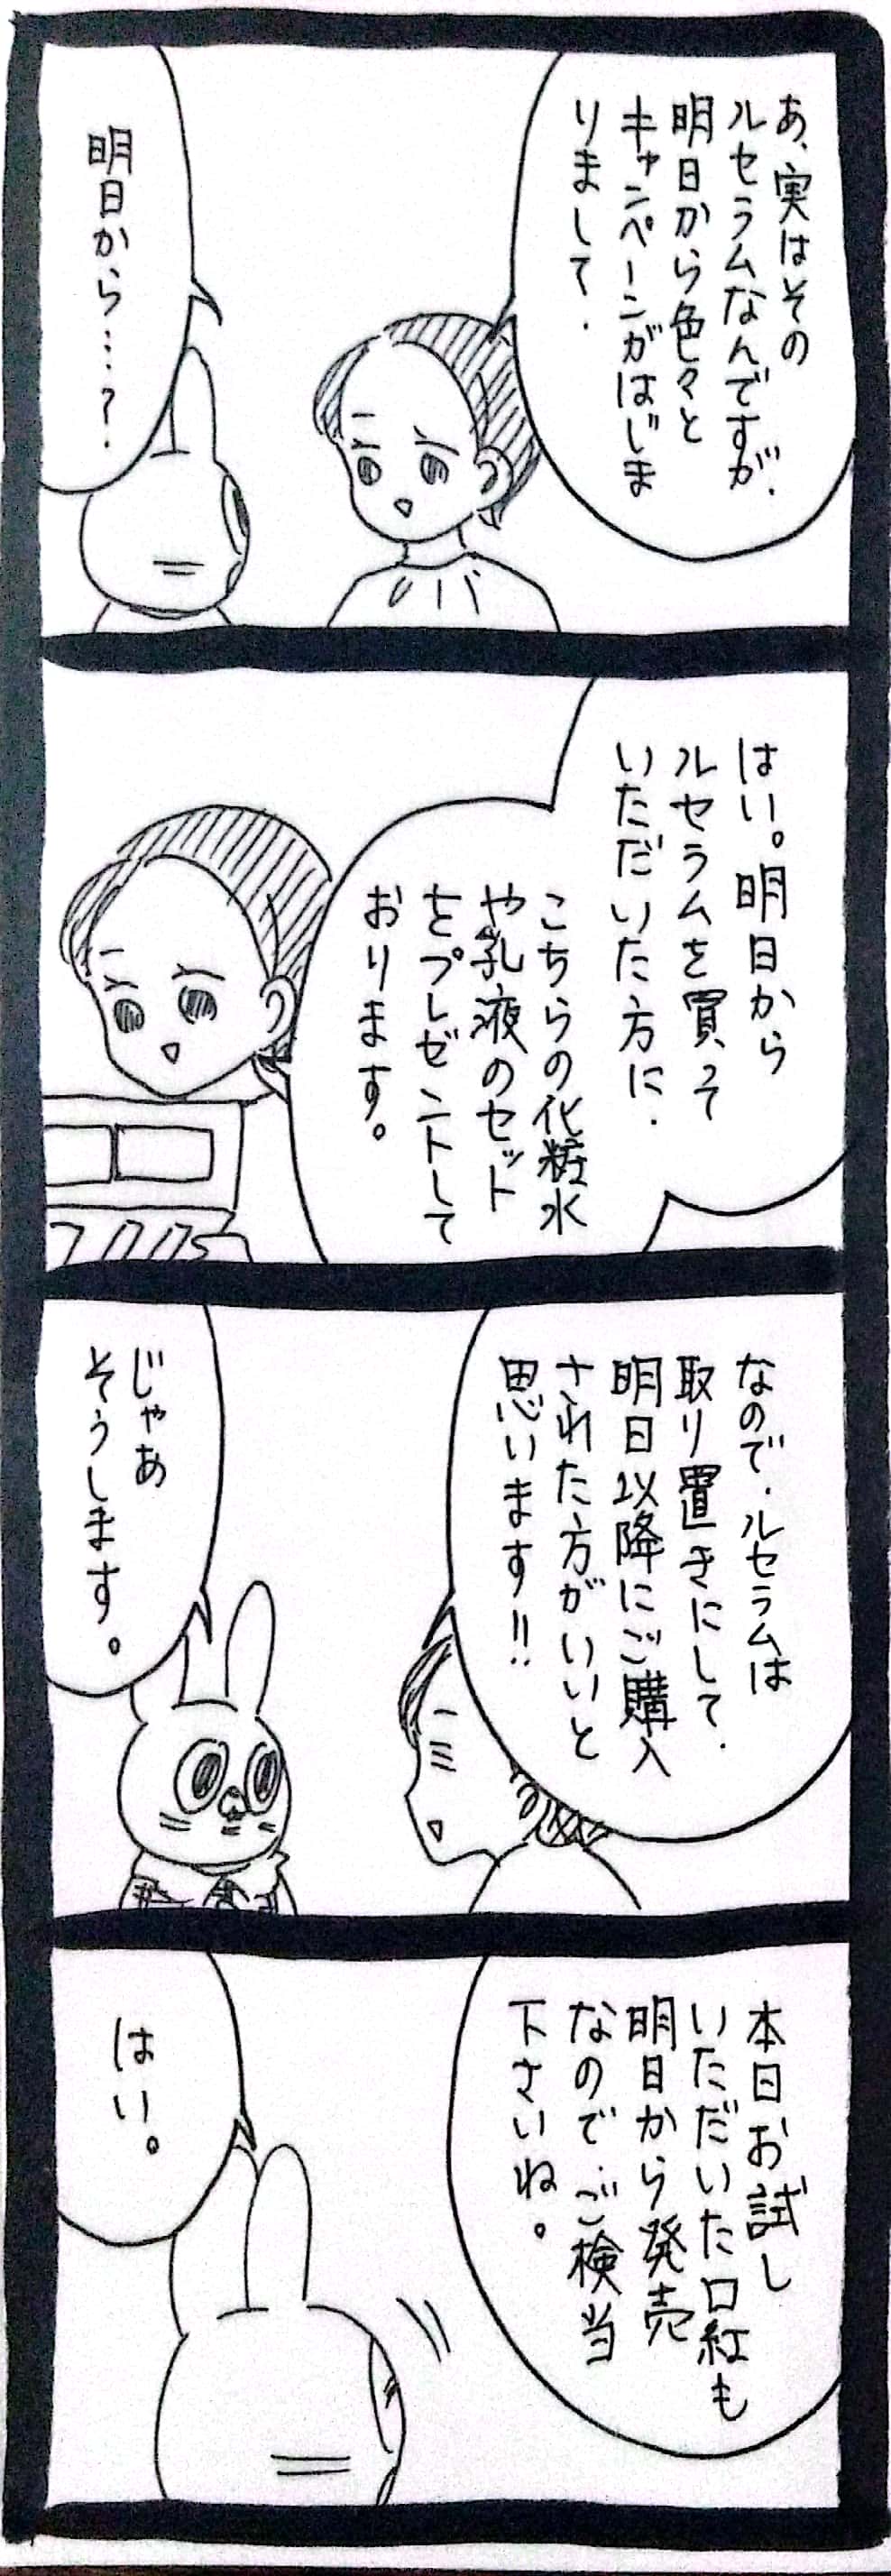 あ、実はその
ルセラムなんですが、
明日から色々と
キャンペーンがはじま
りまして、
明日から…?
はい。明日から
ルセラムを買って
いただいた方に、
こちらの化粧水
や乳液のセット
をプレゼントして
おります。
なので、ルセラムは
取り置きにして、
明日以降にご購入
された方がいいと
思います!!
じゃあ
そうします。
本日お試し
いただいた口紅も
明日から発売
なので、ご検当
下さいね。
はい。